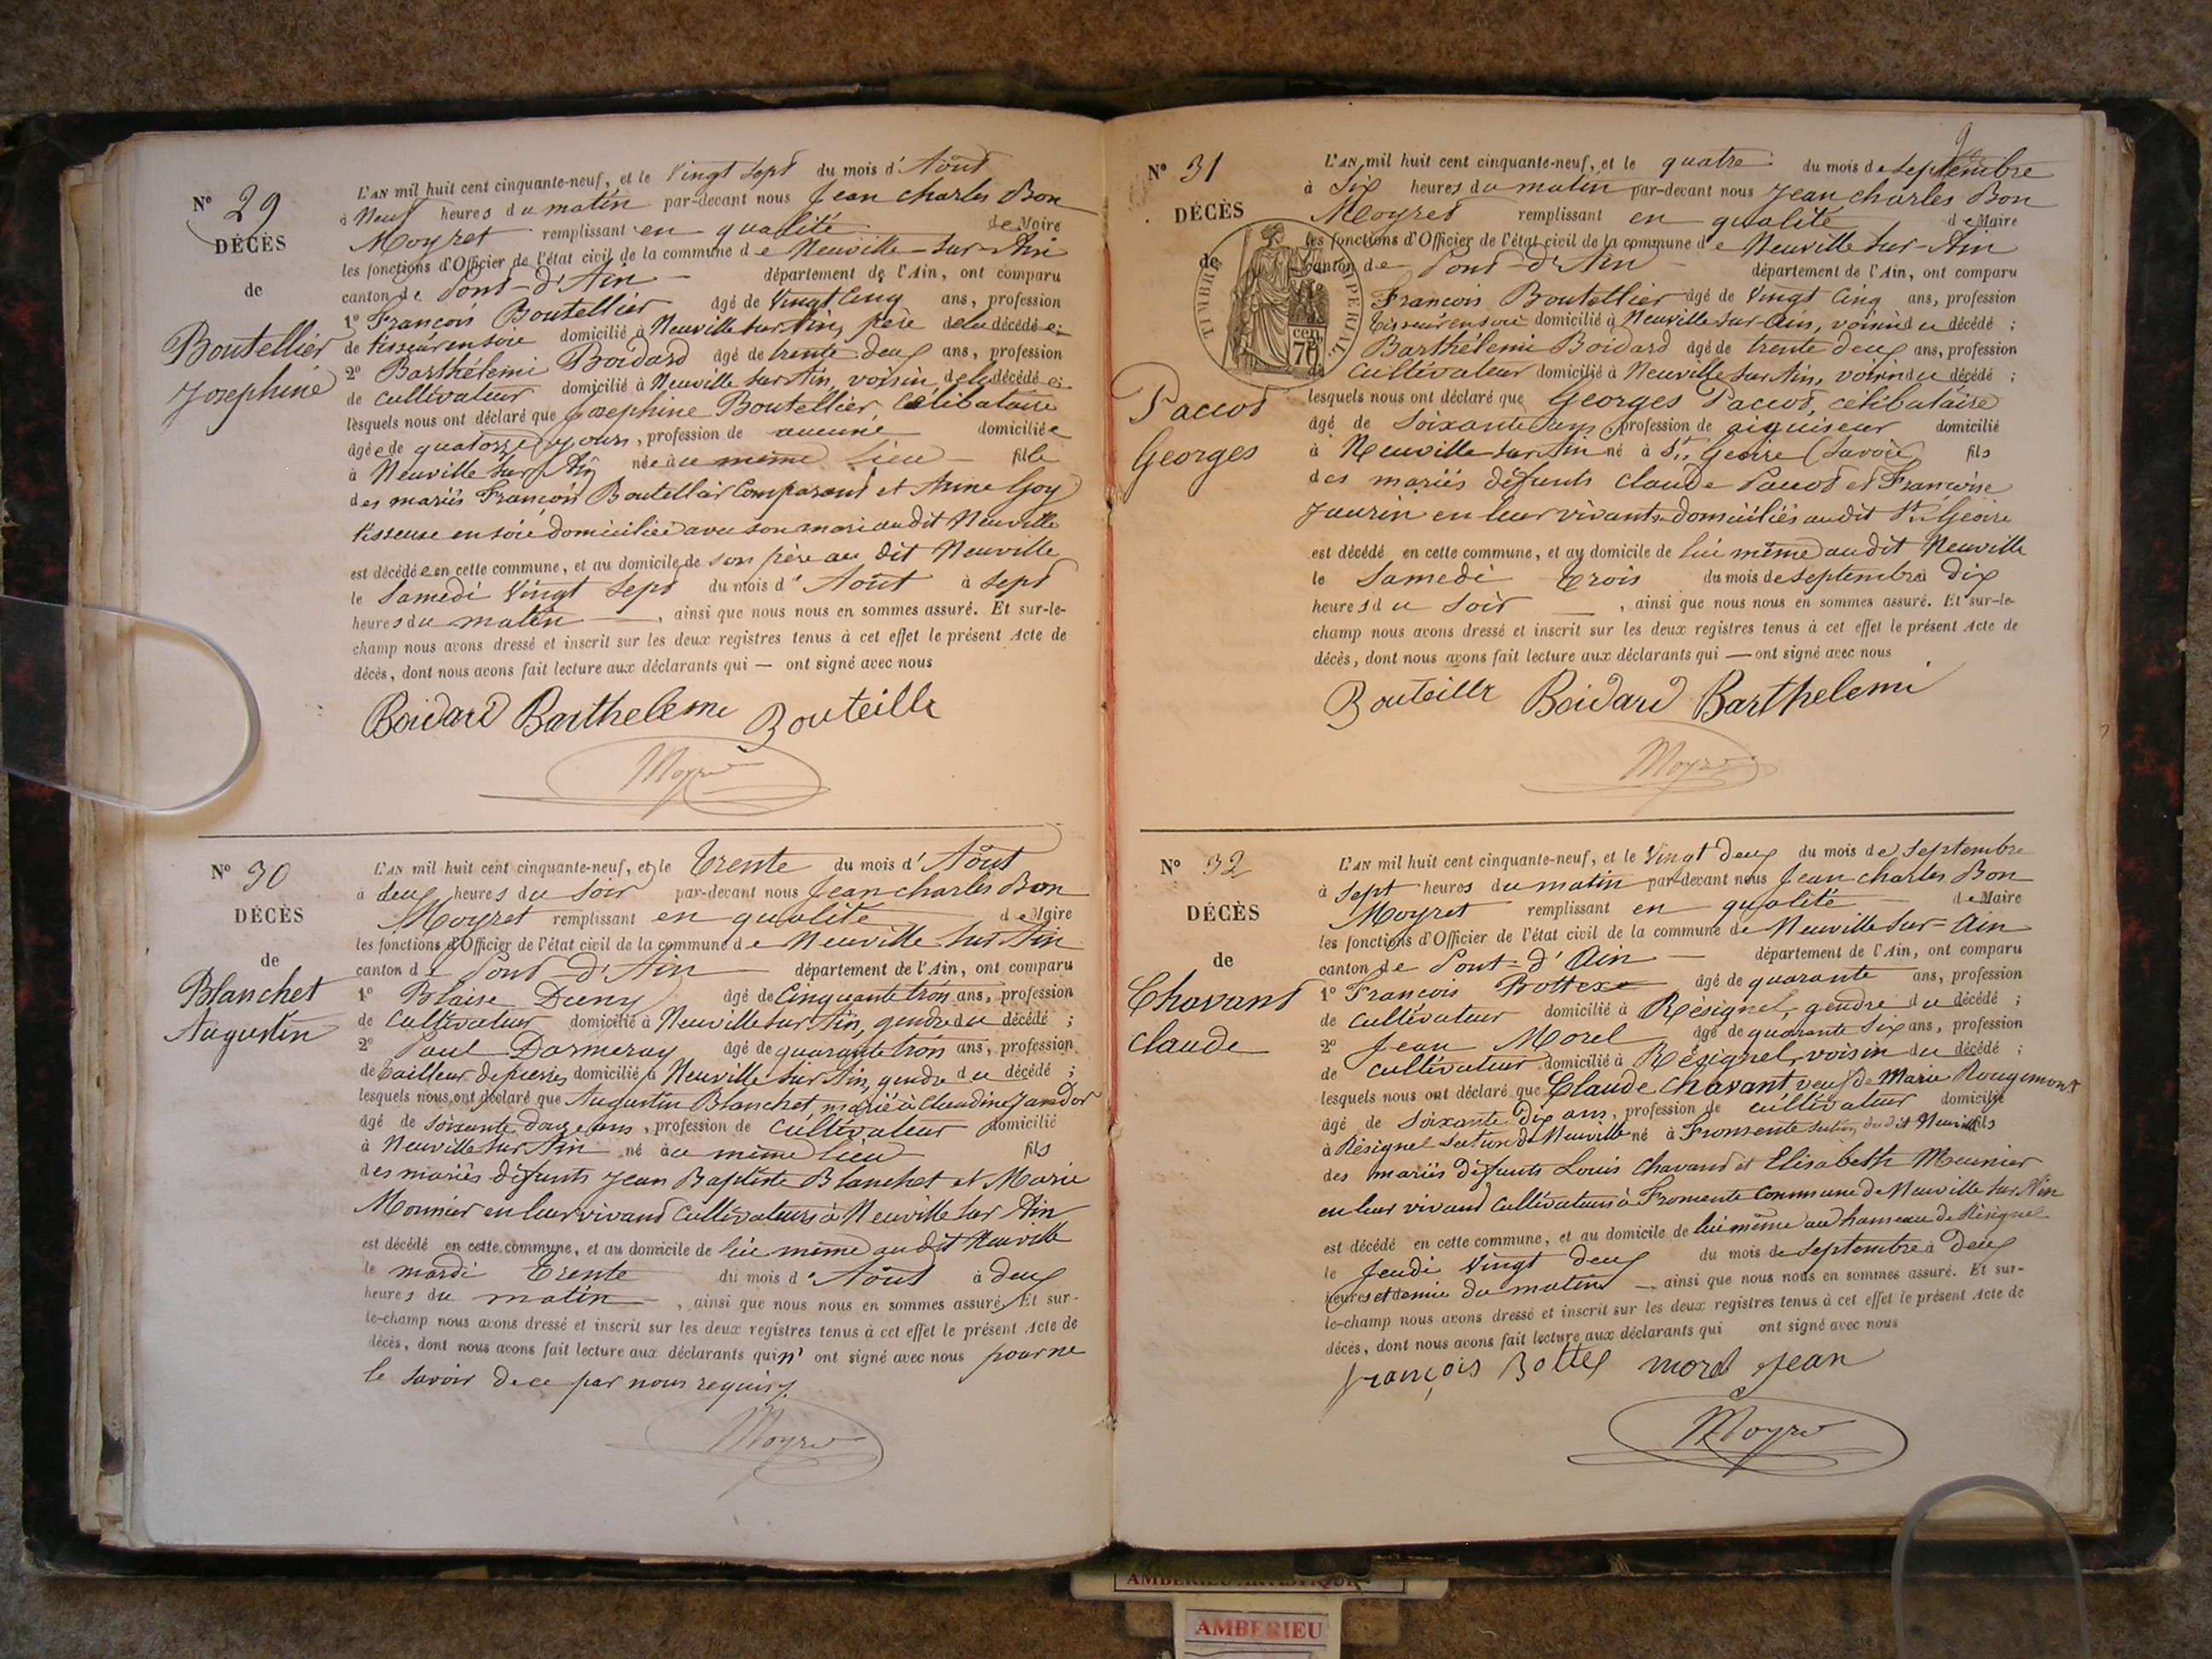 N° 29
DÉCÈS
de
Boutellier
Josephine
L'AN mil huit cent cinquante-neuf, et le Vingt sept du mois d'Août
à Neuf heures du matin par-devant nous Jean charles Bon
Moyret remplissant en qualité de Maire
les fonctions d'Officier de l'état civil de la commune de Neuville-sur-Ain
canton de Pont-d'Ain département de l'Ain, ont comparu
1° Francois Boutellier âgé de Vingt Cinq ans, profession
de tisseur en soie domicilié à Neuville sur Ain, père de la décédée;
2° Barthélemi Boidard âgé de trente deux ans, profession
de cultivateur domicilié à Neuville sur Ain, voisin de la décédée;
lesquels nous ont déclaré que Josephine Boutellier, Célibataire
âgée de quatorze jours, profession de aucune domiciliée
à Neuville sur Ain née au même lieu fille
des mariés François Boutellier Comparant et Anne Goy
tisseuse en soie domiciliée avec son mari audit Neuville
est décédée en cette commune, et au domicile de son père au dit Neuville
le Samedi Vingt Sept du mois d'Août à Sept
heures du matin, ainsi que nous nous en sommes assuré. Et sur-le-
champ nous avons dressé et inscrit sur les deux registres tenus à cet effet le présent Acte de
décès, dont nous avons fait lecture aux déclarants qui — ont signé avec nous
Boidard Barthelemi Bouteille
Moyret
N° 30
DÉCÈS
de
Blanchet
Augustin
L'AN mil huit cent cinquante-neuf, et le trente du mois d'Août
à deux heures du soir par-devant nous Jean charles Bon
Moyret remplissant en qualité de Maire
les fonctions d'Officier de l'état civil de la commune de Neuville sur Ain
canton de Pont-d'Ain département de l'Ain, ont comparu
1° Blaise Duny âgé de Cinquante trois ans, profession
de Cultivateur domicilié à Neuville sur Ain, gendre du décédé;
2° Paul Darmeray âgé de quarante trois ans, profession
de tailleur de pierres domicilié à Neuville sur Ain, gendre du décédé;
lesquels nous ont déclaré que Augustin Blanchet, marié à Claudine
âgé de Soixante douze ans, profession de Cultivateur domicilié
à Neuville sur Ain né au même lieu fils
des mariés défunts Jean Baptiste Blanchet et Marie
Monnier en leur vivant Cultivateurs à Neuville sur Ain
est décédé en cette commune, et au domicile de lui même au dit Neuville
le mardi trente du mois d'Août à deux
heures du matin, ainsi que nous nous en sommes assuré. Et sur-
le-champ nous avons dressé et inscrit sur les deux registres tenus à cet effet le présent Acte de
décès, dont nous avons fait lecture aux déclarants qui n'ont signé avec nous pour ne
le savoir de ce par nous requis
Moyret
N° 31
DÉCÈS
de
TIMBRE IMPERIAL
cen.
70
Paccot
Georges
L'AN mil huit cent cinquante-neuf, et le quatre du mois de septembre
à Six heures du matin par-devant nous Jean charles Bon
Moyret remplissant en qualité de Maire
les fonctions d'Officier de l'état civil de la commune de Neuville sur-Ain
canton de Pont-d'Ain département de l'Ain, ont comparu
Francois Boutellier âgé de Vingt Cinq ans, profession
tisseur en soie domicilié à Neuville sur-Ain, voisin du décédé;
Barthélemi Boidard âgé de trente deux ans, profession
de Cultivateur domicilié à Neuville sur Ain, voisin du décédé;
lesquels nous ont déclaré que Georges Paccot, célibataire
âgé de Soixante ans, profession de aiguiseur domicilié
à Neuville sur Ain né à St. Geoire (Savoie) fils
des mariés défunts Claude Paccot et Françoise
Jaurin en leur vivants domiciliés audit St. Geoire
est décédé en cette commune, et au domicile de lui même au dit Neuville
le Samedi trois du mois de septembre à Dix
heures du Soir, ainsi que nous nous en sommes assuré. Et sur-le-
champ nous avons dressé et inscrit sur les deux registres tenus à cet effet le présent Acte de
décès, dont nous avons fait lecture aux déclarants qui — ont signé avec nous
Bouteille Boidard Barthelemi
Moyret
N° 32
DÉCÈS
de
Chavant
Claude
L'AN mil huit cent cinquante-neuf, et le Vingt deux du mois de septembre
à Sept heures du matin par-devant nous Jean charles Bon
Moyret remplissant en qualité de Maire
les fonctions d'Officier de l'état civil de la commune de Neuville sur-Ain
canton de Pont-d'Ain département de l'Ain, ont comparu
1° Francois Bottex âgé de quarante ans, profession
de cultivateur domicilié à Résignel, gendre du décédé;
2° Jean Morel âgé de quarante Six ans, profession
de Cultivateur domicilié à Résignel, voisin du décédé;
lesquels nous ont déclaré que Claude Chavant, veuf de Marie Rougemont
âgé de Soixante Dix ans, profession de cultivateur domicilié
à Résignel section de Neuville né à Fromente section du dit Neuville fils
des mariés défunts Louis Chavant et Elisabeth Meunier
en leur vivant Cultivateurs à Fromente Commune de Neuville sur Ain
est décédé en cette commune, et au domicile de lui même au hameau de Résignel
le Jeudi Vingt deux du mois de septembre à Deux
heures et demie du matin — ainsi que nous nous en sommes assuré. Et sur-
le-champ nous avons dressé et inscrit sur les deux registres tenus à cet effet le présent Acte de
décès, dont nous avons fait lecture aux déclarants qui ont signé avec nous
françois Bottex morel Jean
Moyret
AMBERIEU ARTISTIQUE
AMBERIEU